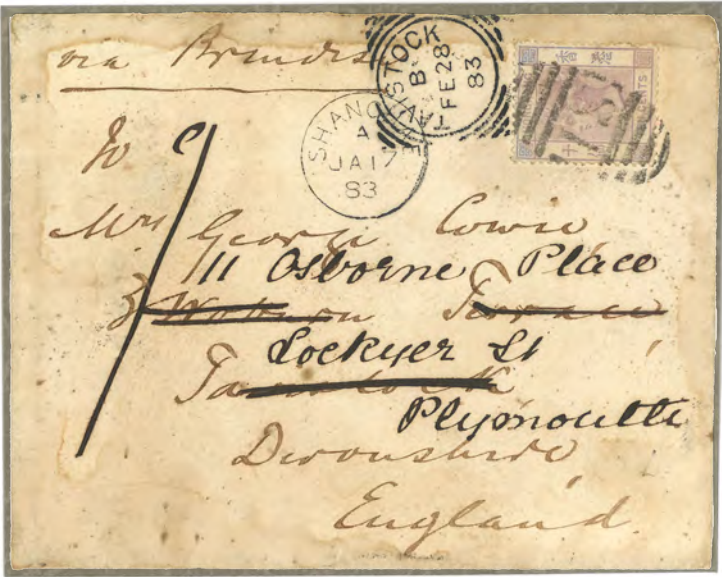 via Brindisi
TAVISTOCK
B
FE 28
83
SHANGHAE
A
JA 17
83
CENTS
To
Mrs George Cowie
11 Osborne Place
3 Woburn Terrace
Lockyer St
Tavistock
Plymouth
Devonshire
England